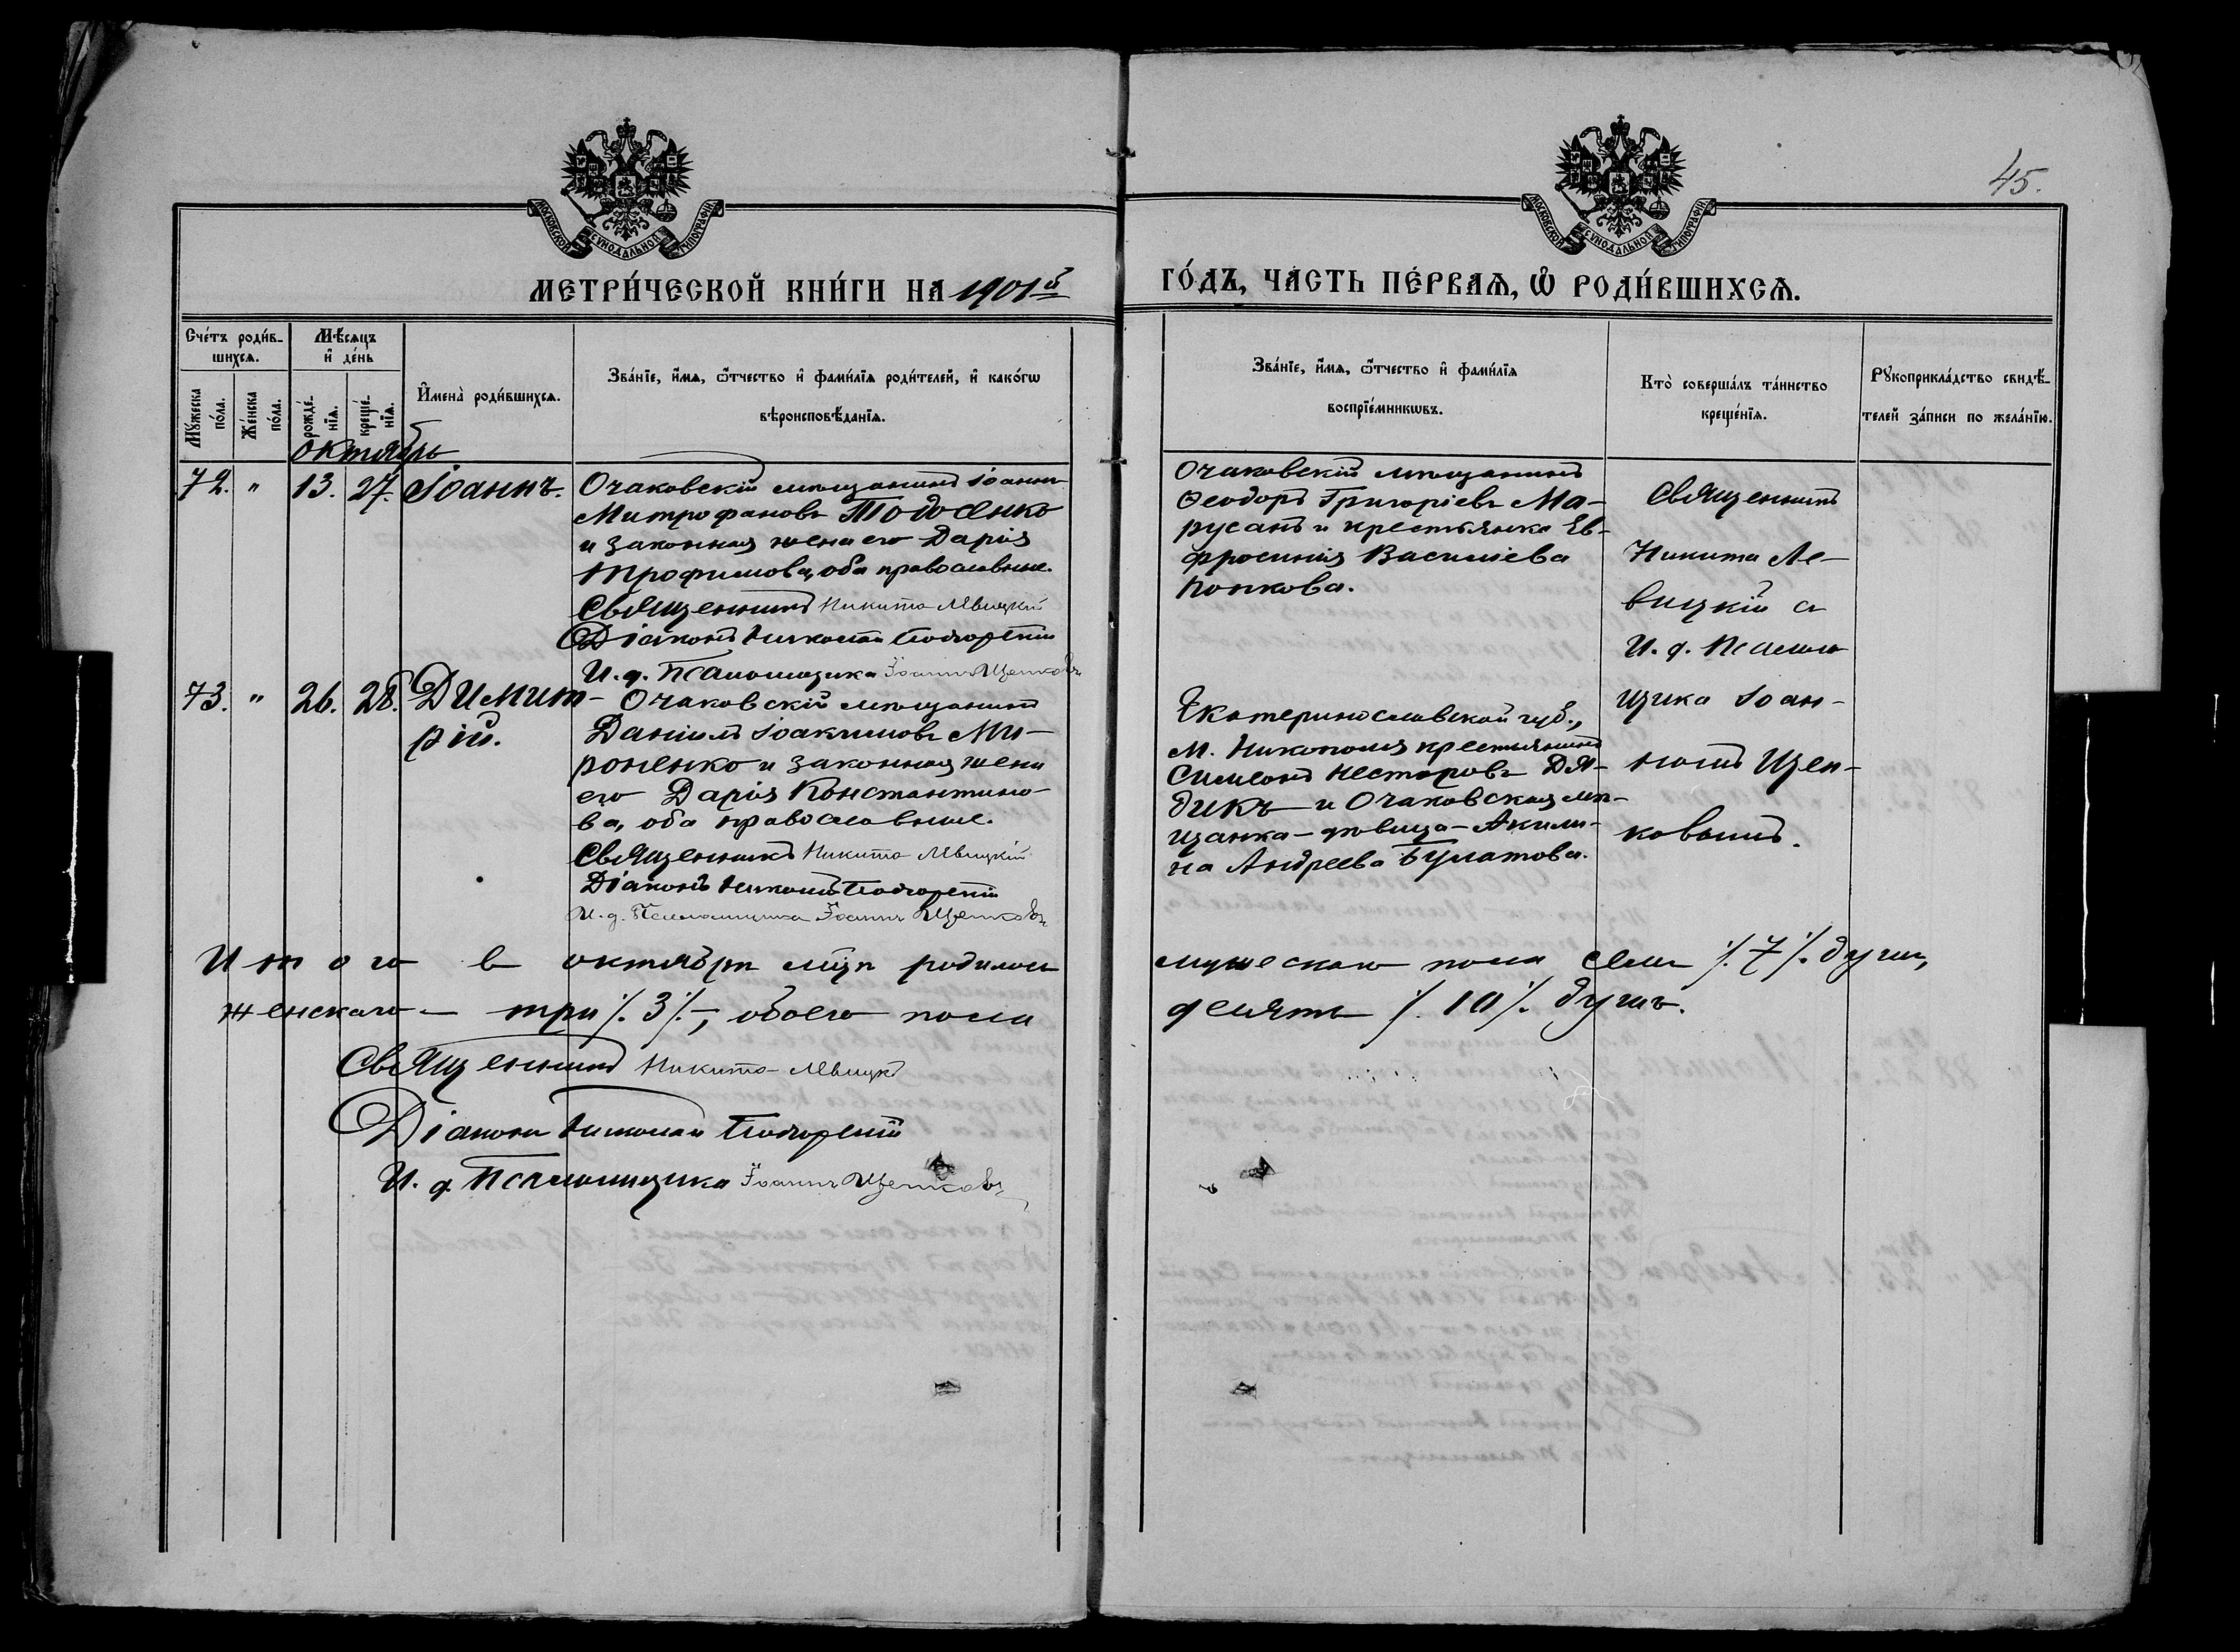 45.
МОСКОВСКОЙ СѴНОДАЛЬНОЙ ТИПОГРАФІИ
МОСКОВСКОЙ СѴНОДАЛЬНОЙ ТИПОГРАФІИ
МЕТРИ́ЧЕСКОЙ КНИ́ГИ НА 1901й
ГО́ДЪ, ЧА́СТЬ ПЕ́РВАѦ, Ѽ РОДИ́ВШИХСѦ.
Сче́тъ роди́в-
шихсѧ.
Мꙋ́жеска
по́ла.
Же́нска
по́ла.
Мѣ́сѧцъ
и҆ де́нь
рожде́-
нїѧ.
креще́-
нїѧ.
И҆мена̀ роди́вшихсѧ.
Зва́нїе, и҆́мѧ, ѻ҆́тчество и҆ фами́лїѧ роди́телей, и҆ како́гѡ
вѣроисповѣ́данїѧ.
Зва́нїе, и҆́мѧ, ѻ҆́тчество и҆ фами́лїѧ
воспрїе́мникѡвъ.
Кто̀ соверша́лъ та́инство
креще́нїѧ.
Рꙋкоприкла́дство свидѣ́-
телей за́писи по жела́нїю.
октябрь
72. " 13. 27. Іоаннъ.
Очаковскій мѣщанинъ Іоаннъ
Митрофановъ Тодосенко
и законная жена его Дарія
Трофимова, оба православные.
Священникъ Никита Левицкій
Діаконъ Николай Подгорскій
И. д. Псаломщика Іоаннъ Щепковъ
Очаковскій мѣщанинъ
Ѳеодоръ Григоріевъ Ма-
русанъ и крестьянка Ев-
фросинія Василіева
Попкова.
Священникъ
Никита Ле-
вицкій с
И. д. Псалом
щика Іоан-
номъ Щеп-
ковымъ.
73. " 26. 28. Димит-
рій.
Очаковскій мѣщанинъ
Даніилъ Іоакимовъ Ми-
роненко и законная жена
его Дарія Константино-
ва, оба православные.
Священникъ Никита Левицкій
Діаконъ Николай Подгорскій
И. д. Псаломщика Іоаннъ Щепковъ
Екатеринославской губ.,
м. Никополя крестьянинъ
Симеонъ Несторовъ Дя-
дикъ и Очаковская мѣ-
щанка - дѣвица - Акили-
на Андреева Булатова.
Итого в октябрѣ мцѣ родилось
мужескаго пола семь ./. 7 ./. душъ,
женскаго - три ./. 3 ./. -, обоего пола
десять ./. 10 ./. душъ.
Священникъ Никита Левицкій
Діаконъ Николай Подгорскій
И. д. Псаломщика Іоаннъ Щепковъ